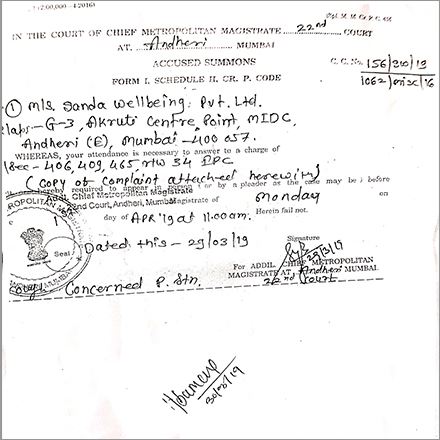 (2,00,000—4-2016)
IN THE COURT OF CHIEF METROPOLITAN MAGISTRATE 22nd COURT
AT. Andheri MUMBAI
ACCUSED SUMMONS
C. C. No. 156/300/19
FORM I. SCHEDULE II. CR. P. CODE
1062/misc/16
① M/s. Sanda Wellbeing Pvt. Ltd.
G-3, Akruti Centre Point, MIDC,
Andheri (E), Mumbai-400 057.
WHEREAS, your attendance is necessary to answer to a charge of
Sec - 406, 409, 465 r/w 34 IPC
(Copy of Complaint attached herewith)
hereby required to appear in person or by a pleader as the case may be before
Addl. Chief Metropolitan Magistrate
22nd Court, Andheri, Mumbai Magistrate of Monday on
day of APR'19 at 11.00am. Herein fail not.
Dated this - 29/03/19
Signature
29/3/19
Seal
FOR ADDIL. CHIEF METROPOLITAN
MAGISTRATE AT. Andheri MUMBAI
22nd Court
Concerned P. Stn.